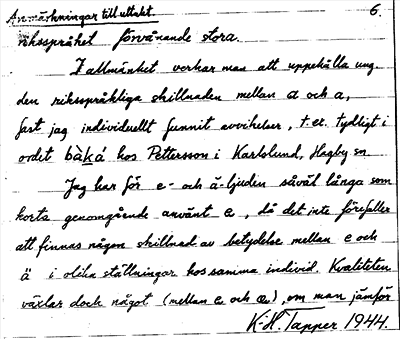 Anmärkningar till uttalet 6.
riksspråket förvånande stora.
I allmänhet verkar man att uppehålla ung.
den riksspråkliga skillnaden mellan a och a,
fast jag individuellt funnit avvikelser, t. ex. tydligt i
ordet bàka hos Pettersson i Karlslund, Hagby sn
Jag har för e- och ä-ljuden såväl långa som
korta genomgående använt e, då det inte förefaller
att finnas någon skillnad av betydelse mellan e och
ä i olika ställningar hos samma individ. Kvaliteten
växlar dock något (mellan e och æ), om man jämför
K-H. Tapper 1944.